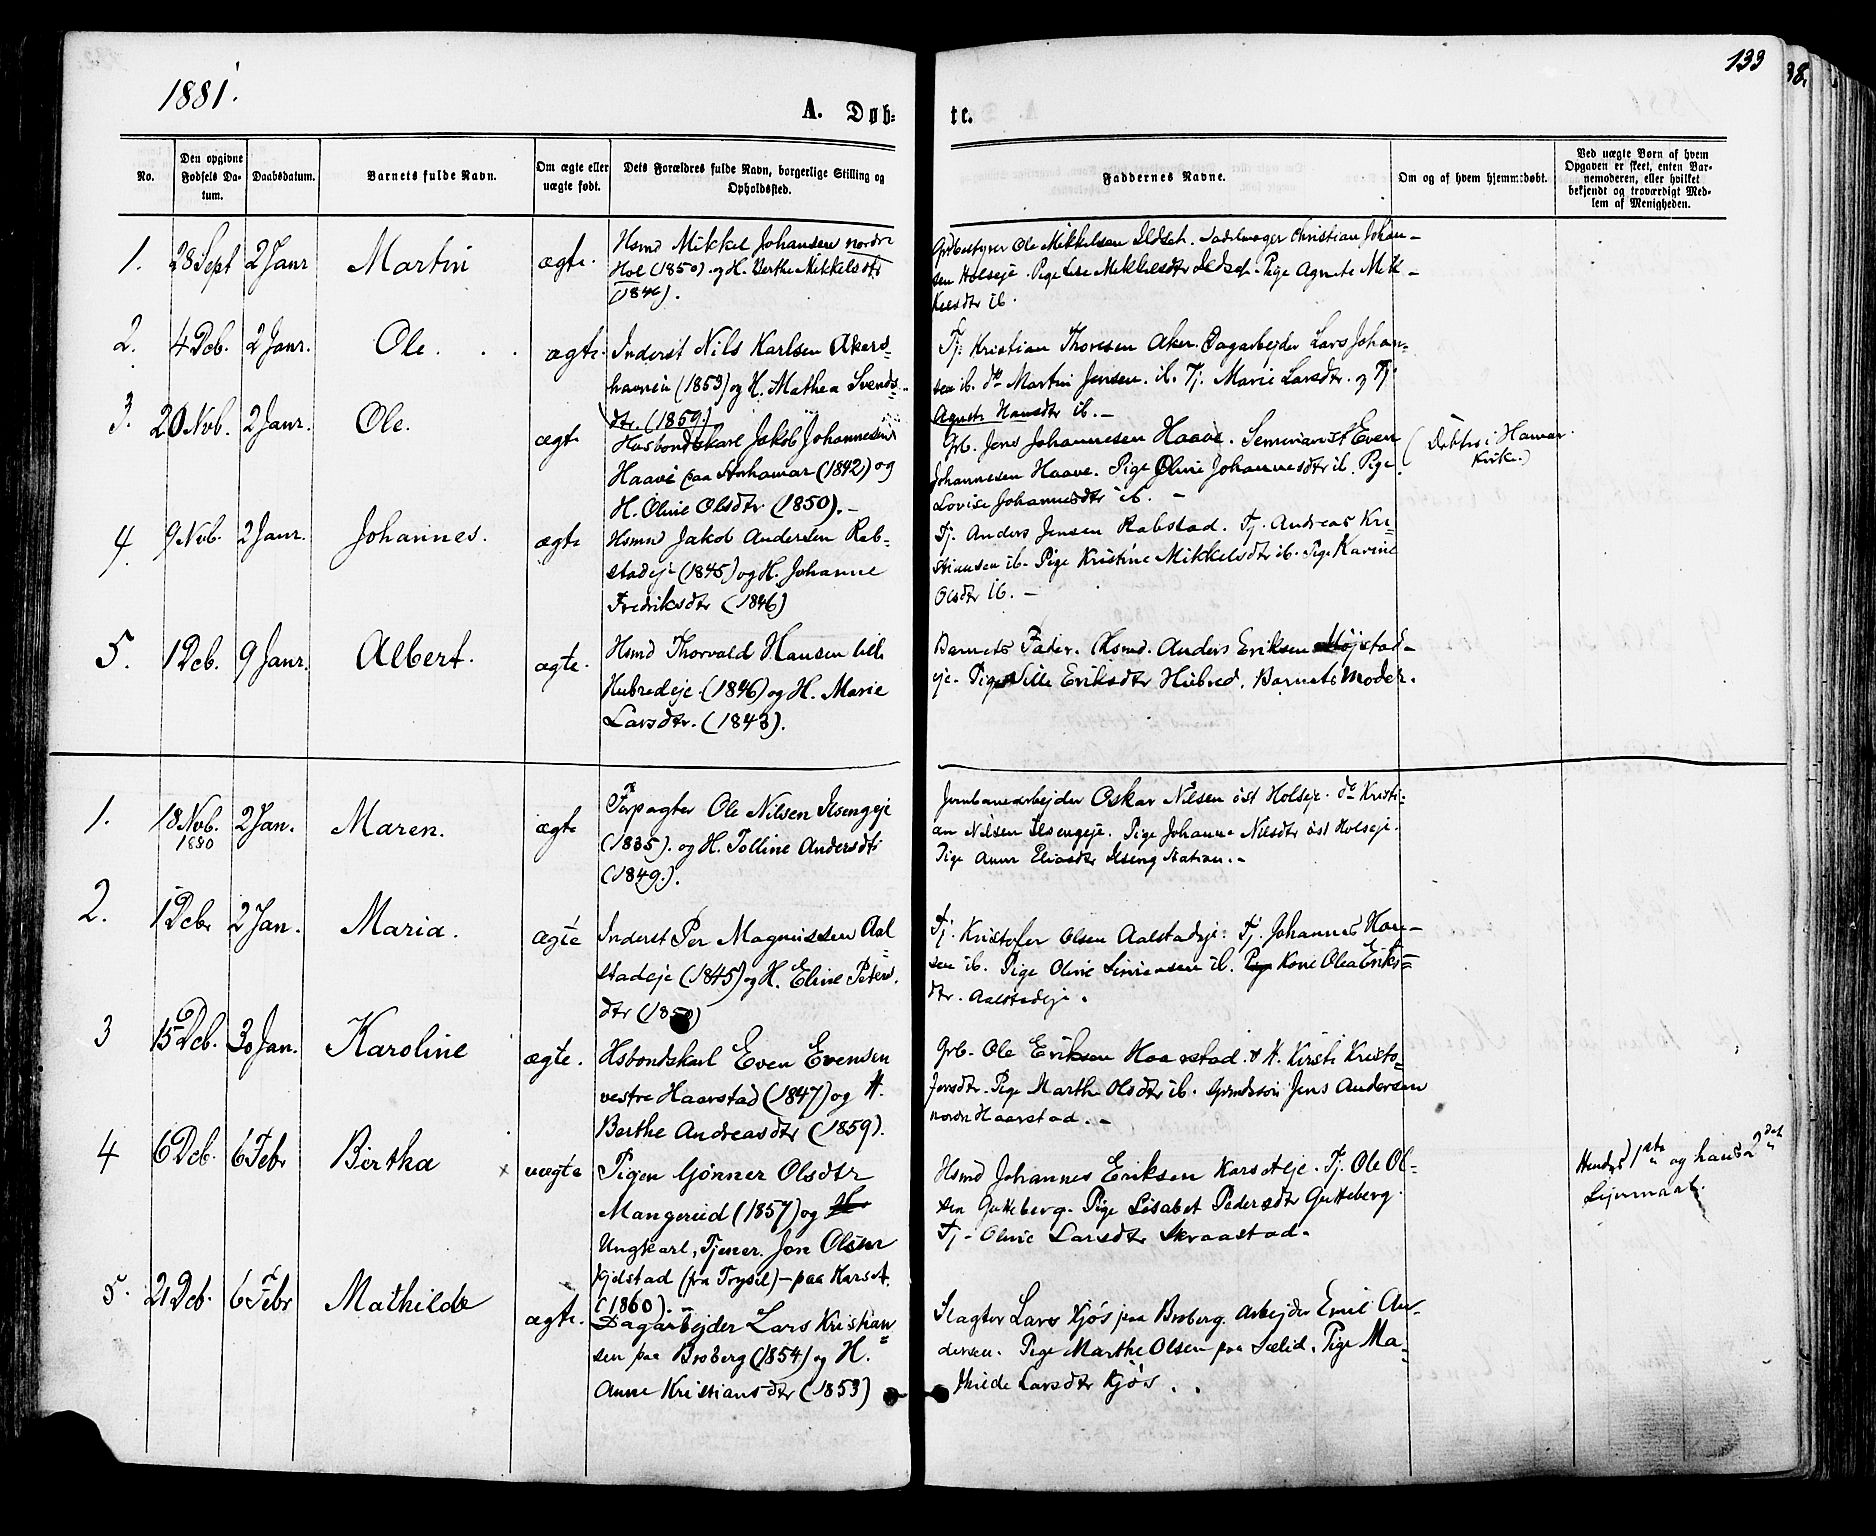 1881.
133
A. Døb=
te.
No.
Den opgivne Fødsels Da-tum.
Daabsdatum.
Barnets fulde Navn.
Om ægte eller uægte født.
Dets Forældres fulde Navn, borgerlige Stilling og Opholdssted.
Faddernes Navne.
Om og af hvem hjemmedøbt.
Ved uægte Børn af hvem Opgaven er skeet, enten Bar-nemoderen, eller hvilket bekjendt og troværdigt Med-lem af Menigheden.
1. 28 Sept 2 Janr Martin ægte.
Hsmd Mikkel Johansen nordre
Hol (1850) og H. Berthe Mikkelsdtr
(1846).
Grbestyrer Ole Mikkelsen Ildset. Sadelmager Christian Johan-
sen Holseje. Pige Lise Mikkelsdtr Ildset. Pige Agnete Mik-
kelsdtr ib.
2. 4 Dcb. 2 Janr. Ole. ægte.
Inderst Nils Karlsen Akers-
havnein (1853) og H. Mathea Svends-
dtr. (1859.)
Tj. Kristian Thoresen Aker. Dagarbejder Lars Johan-
sen ib. do Martin Jensen. ib. Tj. Marie Larsdtr. og Tj
Agnete Hansdtr ib. -
3. 20 Nvb. 2 Janr. Ole. ægte
Husbondskarl Jakob Johannesen
Haave paa Storhamar (1842) og
H. Oline Olsdtr (1850). -
Grb. Jens Johannesen Haave. Seminarist Even
Johannesen Haave. Pige Oline Johannesdtr ib. Pige
Lovise Johannesdtr ib. -
(Døbtes i Hamar
Kirke.)
4. 9 Nvb. 2 Janr. Johannes. ægte
Hsmd Jakob Andersen Rab-
stadeje (1845) og H. Johanne
Fredriksdtr (1846)
Tj. Anders Jensen Rabstad. Tj. Andreas Kri-
stiansen ib. Pige Kristine Mikkelsdtr ib. Pige Karine
Olsdtr ib. -
5. 1 Dcb. 9 Janr. Albert. ægte.
Hsmd Thorvald Hansen lille
Hubredeje (1846) og H. Marie
Larsdtr. (1843).
Barnets Fader. Hsmd. Anders Eriksen Højstad-
eje. Pige Nille Eriksdtr Hubred. Barnets Moder.
1. 18 Nvb. 1880 2 Jan. Maren. ægte
Forpagter Ole Nilsen Ilsengeje
(1835). og H. Tolline Andersdtr
(1849.).
Jernbanearbejder Oskar Nilsen øst Holseje. do Kristi-
an Nilsen Ilsengeje. Pige Johanne Nilsdtr øst Holseje.
Pige Anne Eliasdtr Ilseng Station. -
2. 1 Dcbr 2 Jan. Maria. ægte
Inderst Per Magnussen Aal
stadeje (1845) og H. Eline Peters
dtr (1850)
Tj. Kristofer Olsen Aalstadeje. Tj. Johannes Han-
sen ib. Pige Oline Simensen ib. Pige Kone Olea Eriks=
dtr. Aalstadeje.
3 15 Dcb. 30 Jan. Karoline ægte.
Hsbondskarl Even Evensen
vestre Haarstad (1847) og H.
Berthe Andreasdtr (1859).
Grb. Ole Eriksen Haarstad. & H. Kirsti Kristo-
fersdtr. Pige Marthe Olsdtr ib. Grmdsøn Jens Andersen
nordre Haarstad. -
4 6 Dcb. 6 Febr Birtha x uægte
Pigen Gønner Olsdtr
Mangerud (1857) og H.
Ungkarl, Tjener. Jon Olsen
Kjelstad (fra Trysil) - paa Karset.
(1860).
Hsmd Johannes Eriksen Karseteje. Tj. Ole Ol-
sen Gutteberg. Pige Lisabet Pedersdtr Gutteberg.
Tj. Oline Larsdtr Skraastad.
Hendes 1ste og hans 2det
Lejermaal.
5. 21 Dcb. 6 Febr Mathilde ægte.
Dagarbejder Lars Kristian
sen paa Broberg (1854) og H.
Anne Kristiansdtr (1853)
Slagter Lars Kjøs paa Broberg. Arbejder Emil An-
dersen. Pige Marthe Olsen paa Sælid. Pige Ma-
thilde Larsdtr Kjøs.